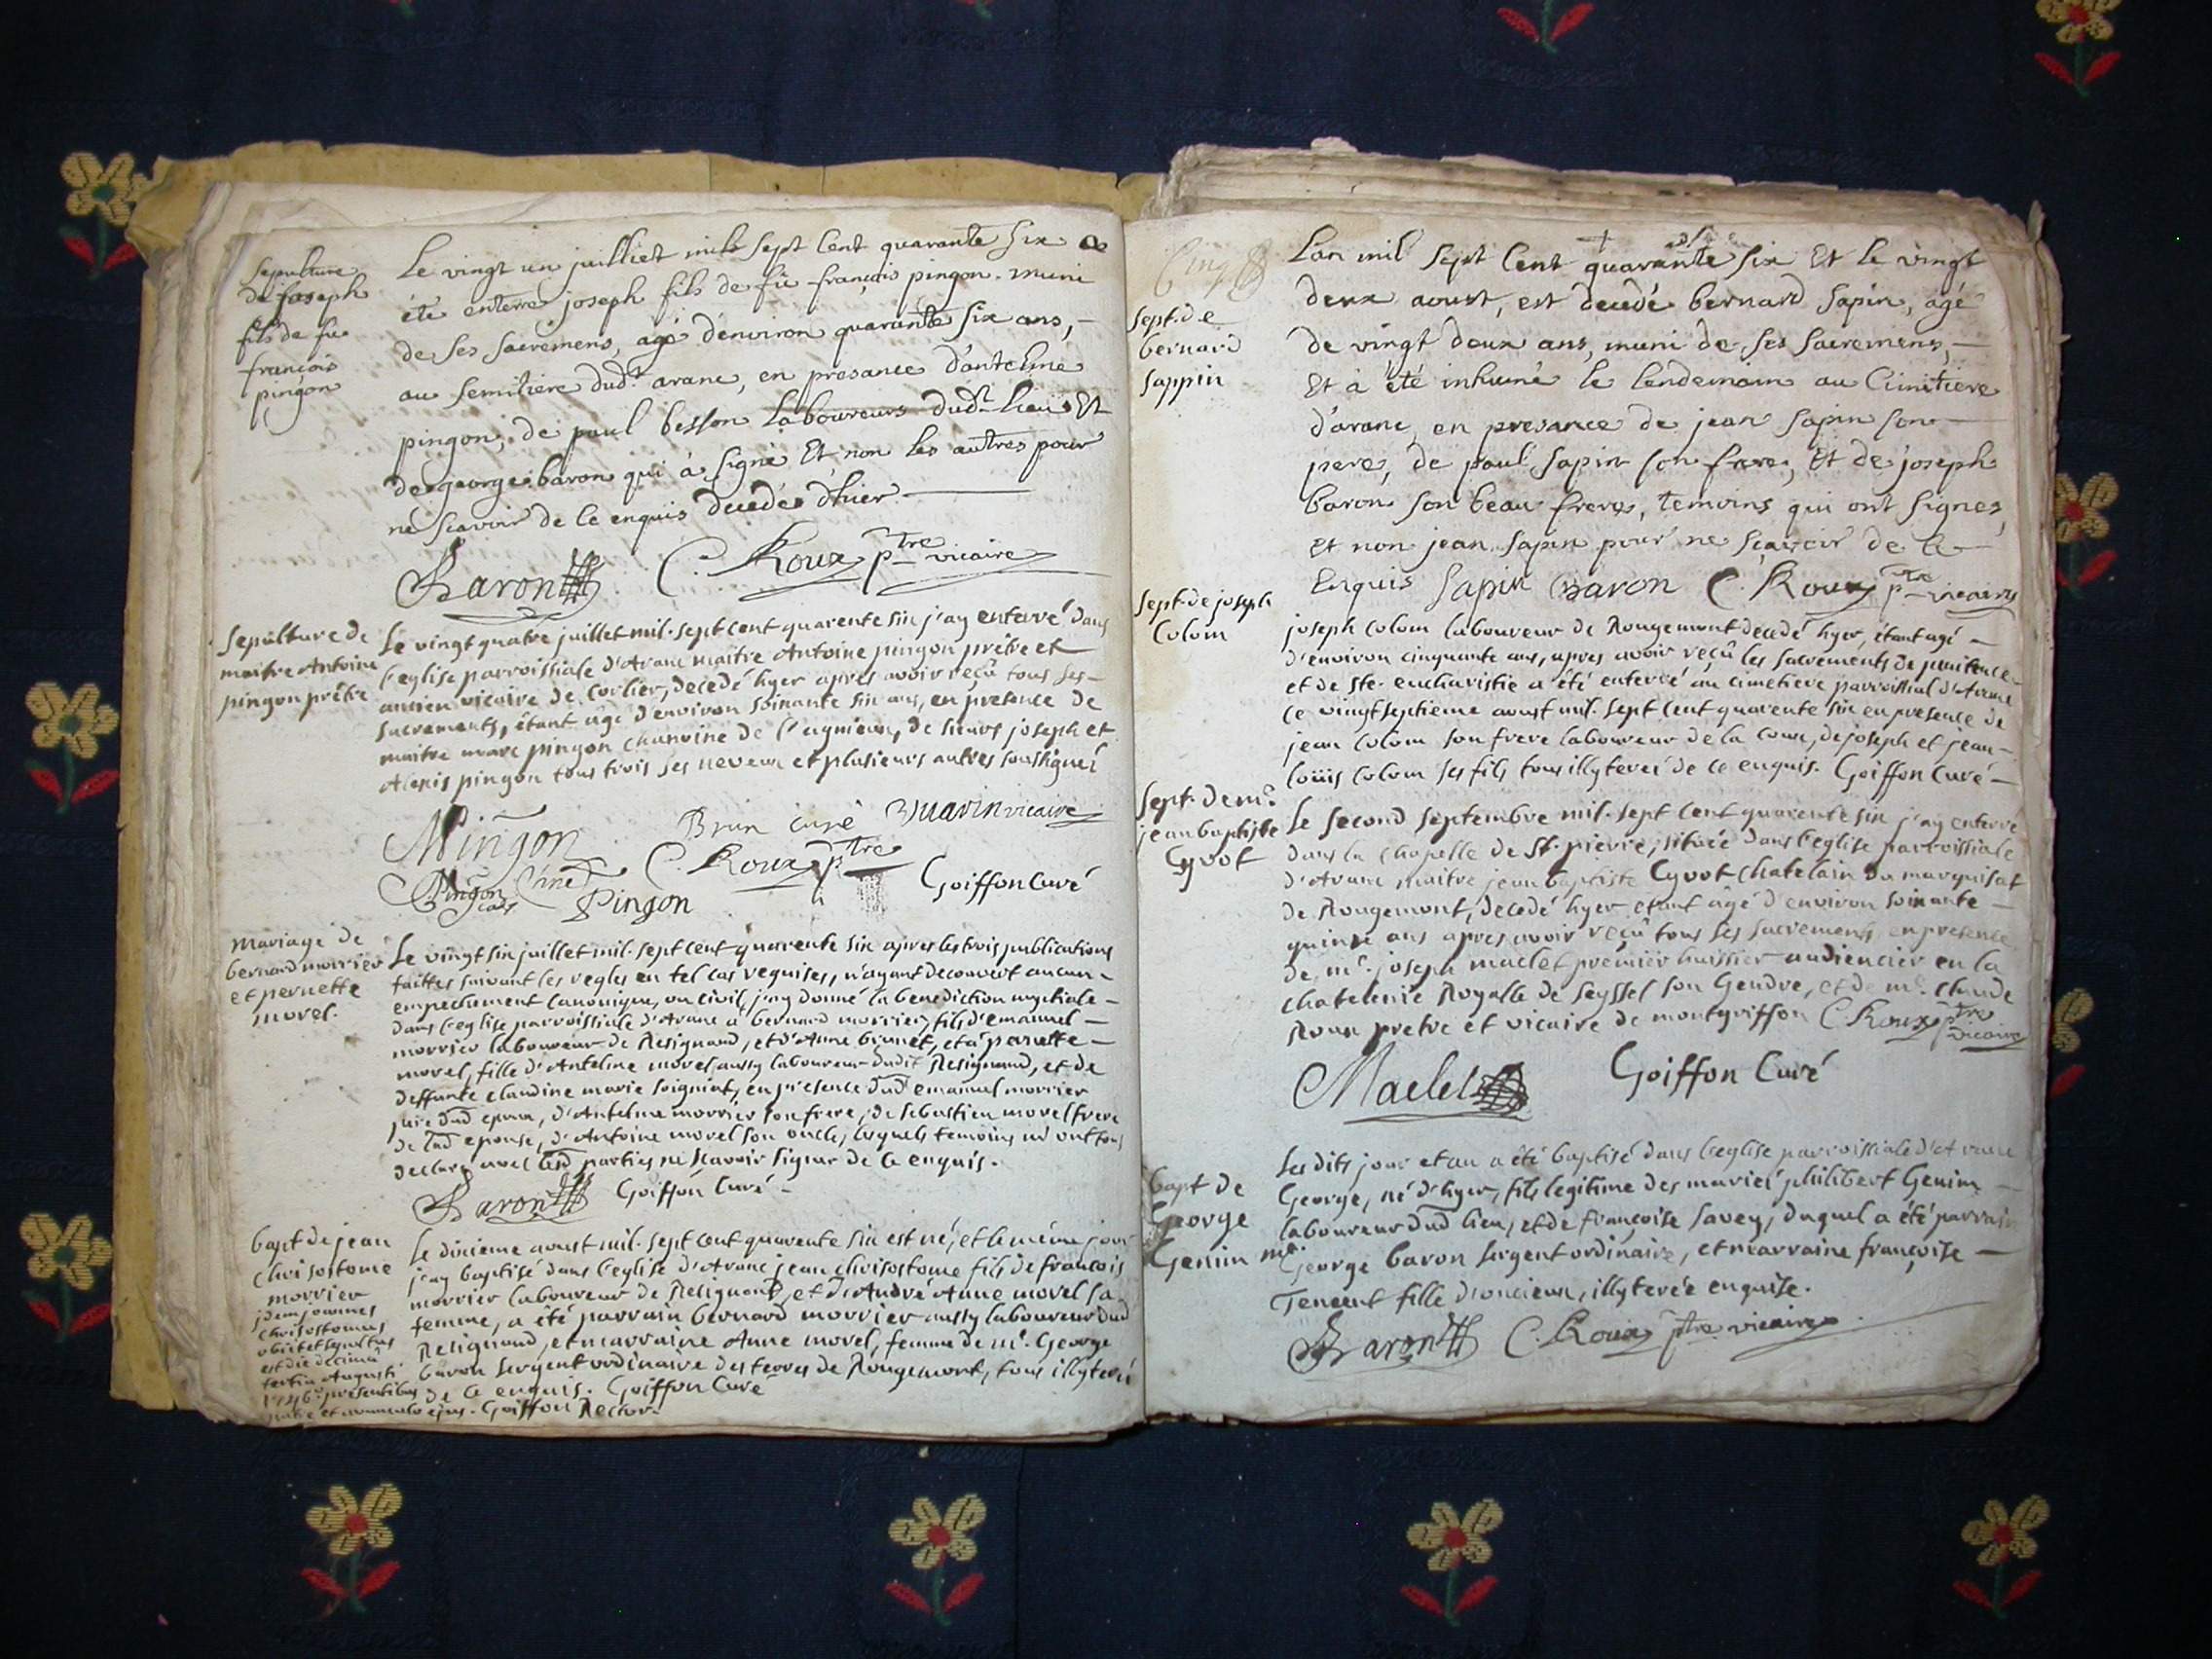 Sepulture
de joseph
fils de fu
françois
pingon
Le vingt un juilliet mil sept Cent quarante six a
été enterré joseph fils de fû françois pingon, muni
de ses sacremens, agé d'environ quarante six ans,
au semitière dud.t aranc, en presance d'antelme
pingon, de paul besson Laboureurs dud.t lieu Et
de george baron qui à signé Et non les autres pour
ne scavoir de ce enquis decedé d'hier
Baron C. Roux ptre vicaire
Sepulture de
maitre Antoine
pingon prêtre
Le vingt quatre juillet mil-sept cent quarente six j'ay enterré dans
l'eglise parroissiale d'Aranc maître Antoine pingon prêtre et
ancien vicaire de Corlier, decedé hyer apres avoir reçû tous ses
sacrements, étant âgé d'environ soixante six ans, en presence de
maitre marc pingon chanoine de l'agnieux, de sieurs joseph et
Alexis pingon tous trois ses neveux et plusieurs autres soussignés
Brun curé Vuarin vicaire
Pingon C. Roux ptre
Pingon Goiffon Curé
mariage de
bernard morrier
et pernette
morel.
Le vingt six juillet mil-sept cent quarente six apres les trois publications
faittes suivant les regles en tel cas requises, n'ayant decouvert aucun
empechement canonique, ou civil, j'ay donné la benediction nuptiale
dans l'eglise parroissiale d'Aranc a bernard morrier, fils d'emanuel
morrier laboureur de Resignand, et d'Anne brunet, et à pernette
morel, fille d'Antelme morel aussy laboureur dudit Resignand, et de
deffunte claudine marie soigniat, en presence dud emanuel morrier
pere dud epoux, d'Antelme morrier son frere, de sebastien morel frere
de lad epouse, d'Antoine morel son oncle, lesquels temoins m'ont tous
declaré avec lesd parties ne scavoir signer de ce enquis.
Baron Goiffon Curé
bapt de jean
chrisostome
morrier
idem joannes
chrisostomus
obiit et sepultus
est die decima
tertia Augusti
1746 presentibus
patre et avunculo ejus. Goiffon Rector.
Le dixieme aoust mil-sept cent quarente six est né, et le même jour
j'ay baptisé dans l'eglise d'Aranc jean chrisostome fils de françois
morrier laboureur de Resignand, et d'Andrée Anne morel sa
femme, a été parrain bernard morrier aussy laboureur dud
Resignand, et marraine Anne morel, femme de m.e George
baron sergent ordinaire des terres de Rougemont, tous illyterés
de ce enquis. Goiffon Curé
sept. de
bernard
sappin
Lan mil sept Cent quarante six Et le vingt
deux aoust, est decedé bernard sapin, agé
de vingt deux ans, muni de ses sacremens,
Et à été inhumé le lendemain au Cimitiere
d'aranc, en presance de jean sapin son
pere, de paul sapin son frere, Et de joseph
baron son beau frere, temoins qui ont signes,
et non jean sapin pour ne sçavoir de ce
Enquis Sapin Baron C. Roux ptre vicaire
sept. de joseph
Colom
joseph Colom laboureur de Rougemont decedé hyer, étant agé
d'environ cinquante ans, apres avoir reçû les sacrements de penitence
et de ste. eucharistie a été enterré au cimetiere parroissial d'Aranc
ce vingt septieme aoust mil-sept cent quarente six en presence de
jean Colom son frere laboureur de la cour, de joseph et jean
loüis Colom ses fils tous illyterés de ce enquis. Goiffon Curé
sept. de m.e
jean baptiste
Cyvot
Le second septembre mil-sept cent quarente six j'ay enterré
dans la chapelle de St. pierre, située dans l'eglise parroissiale
d'Aranc maitre jean baptiste Cyvot chatelain du marquisat
de Rougemont, decedé hyer, etant âgé d'environ soixante
quinze ans apres avoir reçû tous ses sacrements en presence
de m.e joseph maclet premier huissier audiencier en la
chatelenie Royalle de seyssel son Gendre, et de m.e claude
Roux pretre et vicaire de montgriffon C. Roux ptre
vicaire
Maclet Goiffon Curé
bapt de
George
Genin
Les dits jour et an a été baptisé dans l'eglise parroissiale d'Aranc
George, né d'hyer, fils legitime des mariés philibert Genin
laboureur dud lieu, et de françoise savey, duquel a été parrain
m.e George baron sergent ordinaire, et marraine françoise
Tenent fille d'oncieux, illyterée enquise.
Baron C. Roux ptre vicaire